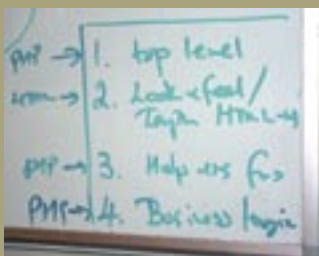 PHP → 1. top level
HTML → 2. Look & feel /
HTML →
PHP → 3. Help
PHP → 4. Business logic